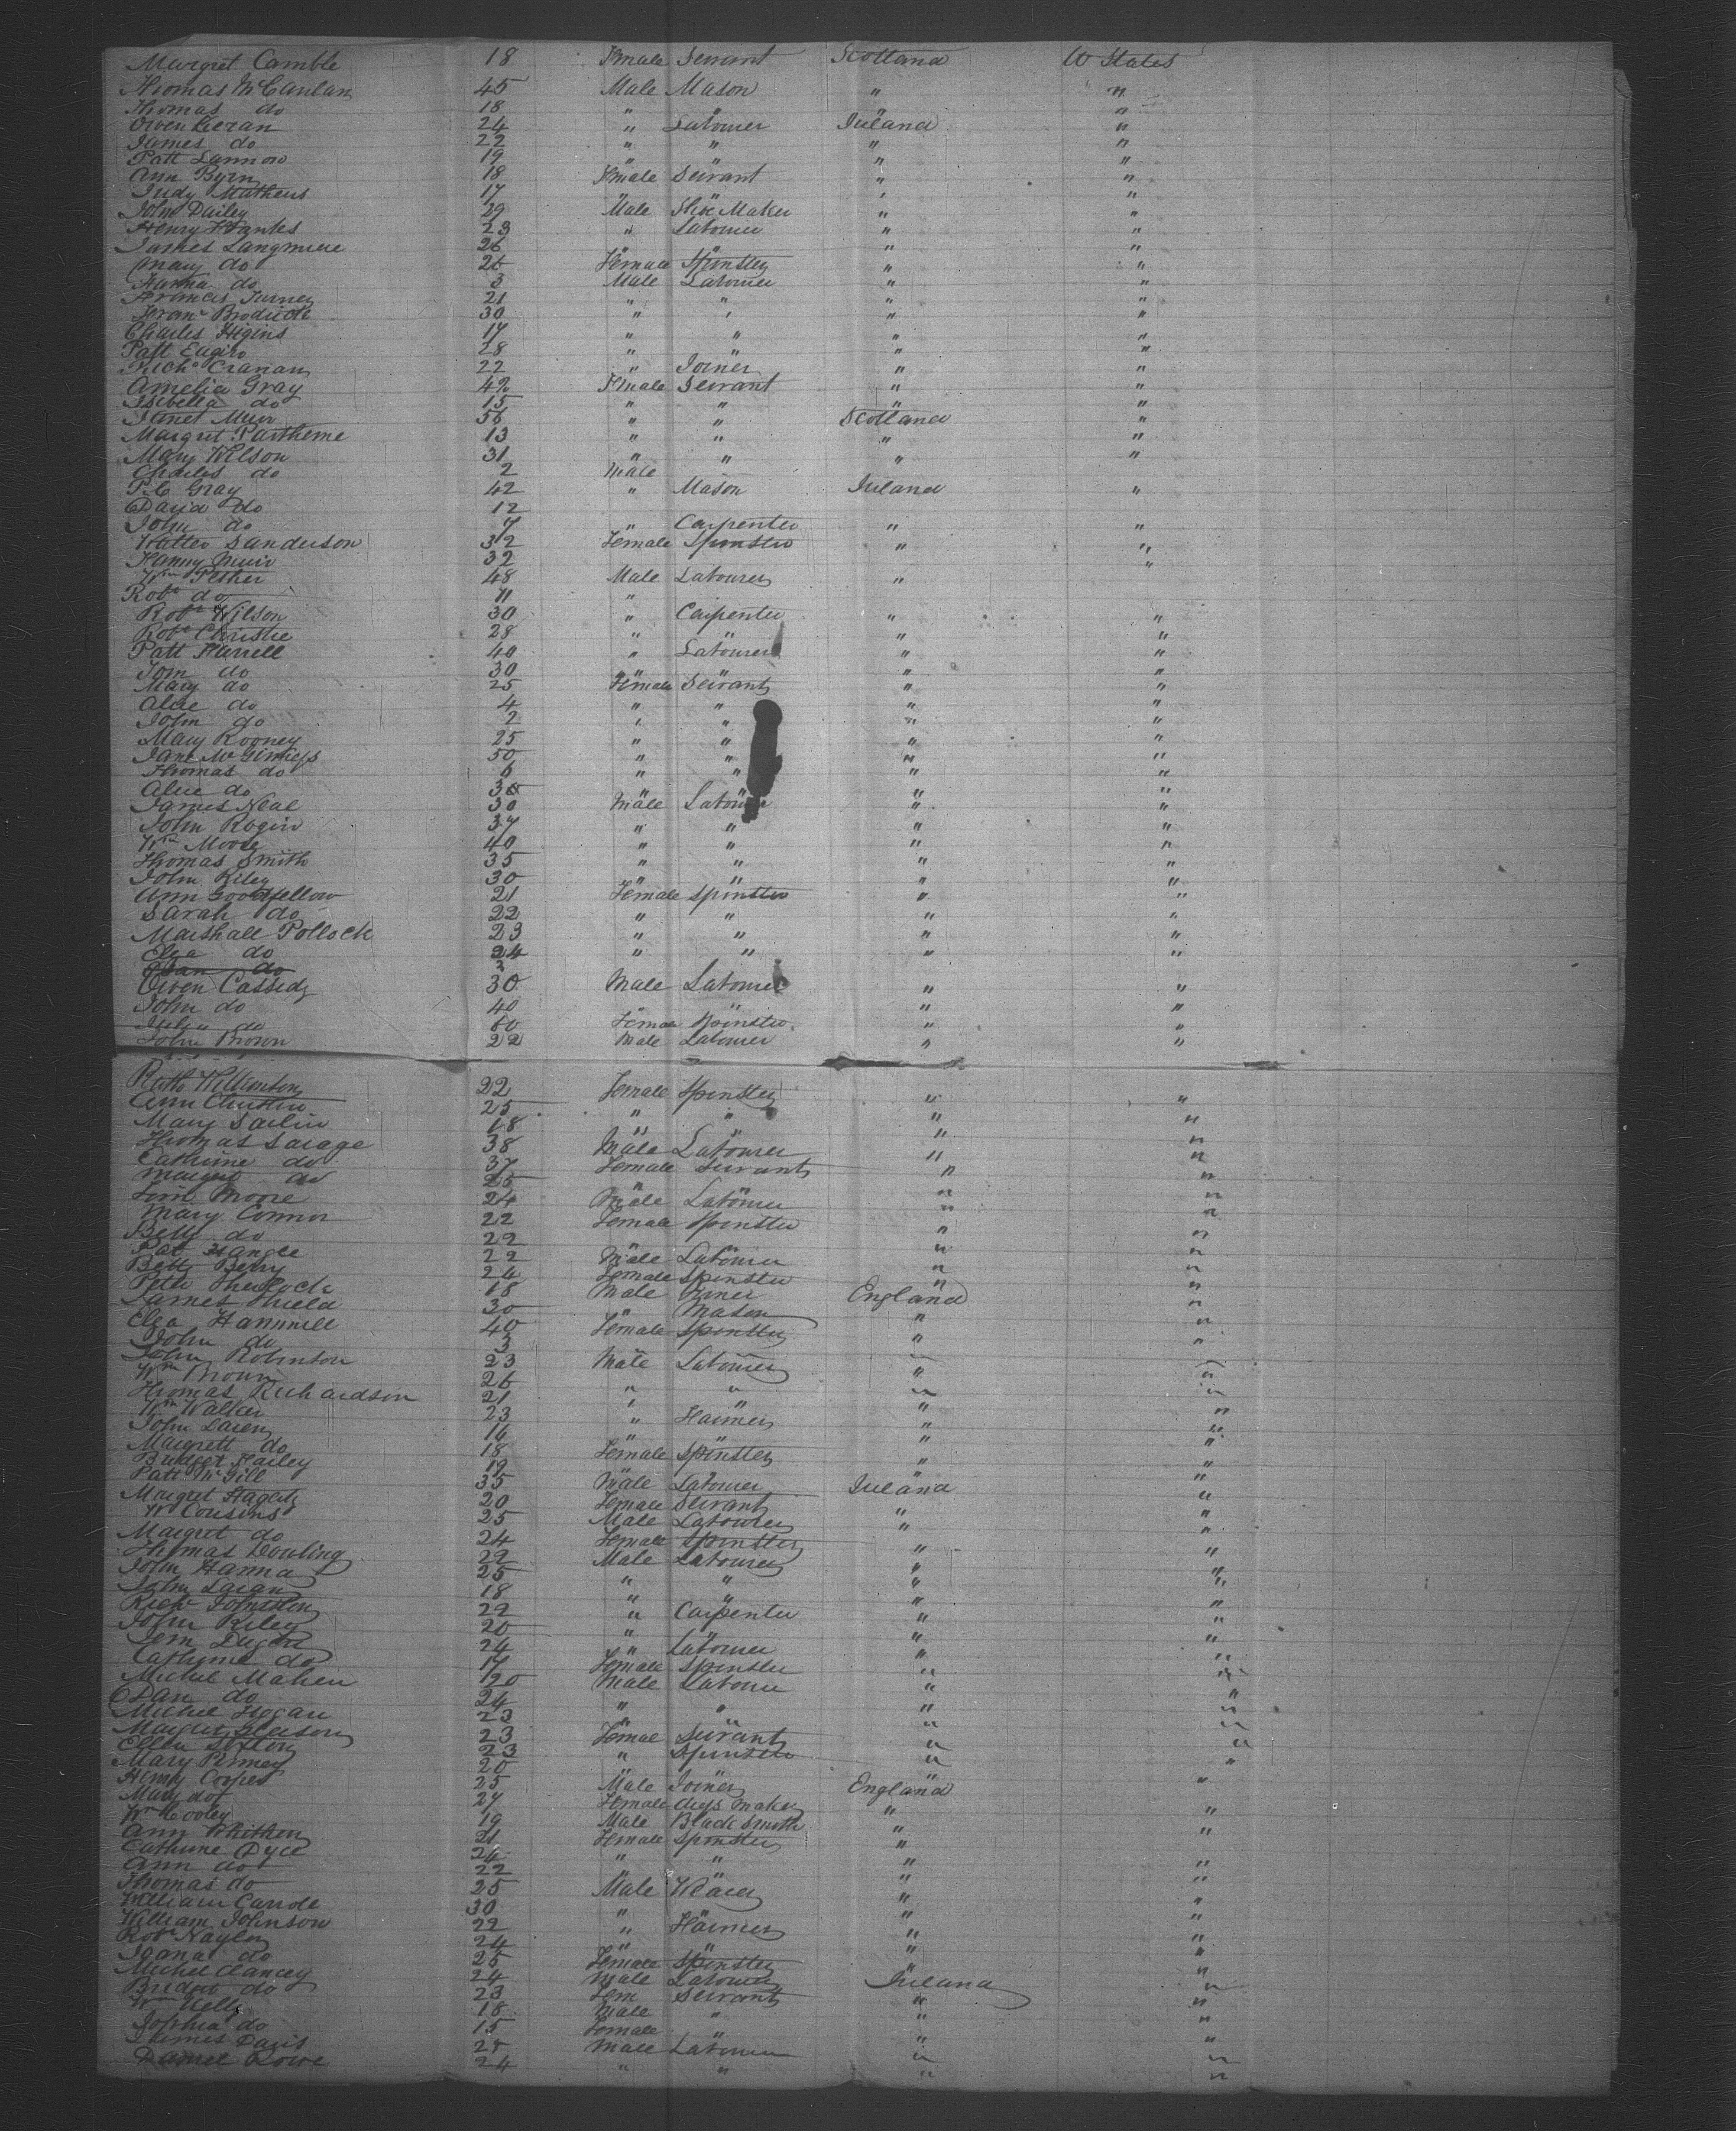 Margret Camble 18 Female Servant Scotland U States
Thomas McCanlan 45 Male Mason " "
Thomas do 18 " " "
Owen Keran 24 " Labourer Ireland "
James do 22 " " " "
Patt Lannon 19 " " "
Ann Byrn 18 Female Servant " "
Judy Mathews 17 " " " "
John Dailey 29 Male Shoe Maker " "
Henry Hanks 23 " Labourer " "
James Langmire 26 " " " "
Mary do 26 Female Spinster " "
Hanna do 3 Male Labourer " "
Francis Turney 21 " " " "
Fran Brodrick 30 " " " "
Charles Higins 17 " " " "
Patt 28 " " "
Richd Cranan 22 " Joiner " "
Amelia Gray 42 Female Servant " "
Isibella do 15 " " " "
Jenet Muir 56 " " Scotland "
Margret 13 " " " "
Mary Wilson 31 " " " "
Charles do 2 Male
Gray 42 " Mason Ireland "
David do 12
John do 7 " Carpenter " "
Walter Sanderson 32 Female Spinster " "
Fanny Muir 32 "
Wm Pether 48 Male Labourer "
Robt do 11 "
Robt Wilson 30 " Carpenter " "
Robt Christie 28 " " " "
Patt Farrell 40 " Labourer " "
Tom do 30 " " " "
Mary do 25 Female Servant " "
Alice do 4 " " " "
John do 2 " " " "
Mary Rooney 25 " " " "
Jane McGinness 50 " " " "
Thomas do 6 " " " "
Alice do 38 " " " "
James Neal 30 Male Labourer " "
John Rogin 37 " " " "
Wm Moore 40 " " " "
Thomas Smith 35 " " " "
John Riley 30 " " " "
Ann Goodfellow 21 Female Spinster " "
Sarah do 22 " " " "
Marshall Pollock 23 " " " "
Elza do 24 " " " "
do 3
Owen Cassidy 30 Male Labourer " "
John do 40 " " " "
do 60 Female Spinster " "
John Brown 22 Male Labourer " "
Ruth Williamson 22 Female Spinster " "
Ann Christie 25 " " " "
Mary 18 " " " "
Thomas Savage 38 Male Labourer " "
Cathrine do 37 Female Servant " "
Margret do 25 "
Moore 24 Male Labourer " "
Mary Connor 22 Female Spinster " "
Betty do 22 " "
Pat 22 Male Labourer " "
Betty Berry 24 Female Spinster " "
Peter 18 Male Joiner " "
James Shield 30 " Mason England "
Elza Hammill 40 Female Spinster " "
John do 3 " "
John Robinson 23 Male Labourer " "
Wm Brown 26 " "
Thomas Richardson 21 " " " "
Wm Walker 23 " " " "
John 16 " Farmer " "
Margrett do 18 Female Spinster " "
Bridget Hailey 19 " "
Patt McGill 35 Male Labourer Ireland "
Margret Hagerty 20 Female Servant "
W Cousens 25 Male Labourer " "
Margret do 24 Female Spinster " "
Thomas Dowling 22 Male Labourer " "
John Hanna 25 " " " "
John 18 " " " "
Richd Johnston 22 " Carpenter " "
John Riley 20 " " "
Jem 24 " Labourer " "
Cathrine do 17 Female Spinster " "
Michel Maheu 120 Male Labourer " "
Dan do 24 " " " "
Michel Hogan 23 " " " "
Margret Gleason 23 Female Servant " "
Ellen Sexton 23 " Spinster " "
Mary 20 " "
Henry Cooper 25 Male Joiner England "
Mary do 27 Female dress maker " "
Wm Cooley 19 Male Blacksmith " "
Ann 21 Female Spinster "
Cathrine Dyce 26 " " " "
Ann do 22 " " " "
Thomas do 25 Male Weaver " "
William Carrole 30 " " "
William Johnson 22 " Farmer " "
Robt Naylor 24 " " " "
Joana do 25 Female Spinster " "
Michel Clancey 24 Male Labourer Ireland "
Bridget do 23 Fem Servant " "
Wm Kelly 18 Male " " "
Sophia do 15 Female
James Davis 28 Male Labourer " "
Daniel Rowe 24 " " " "